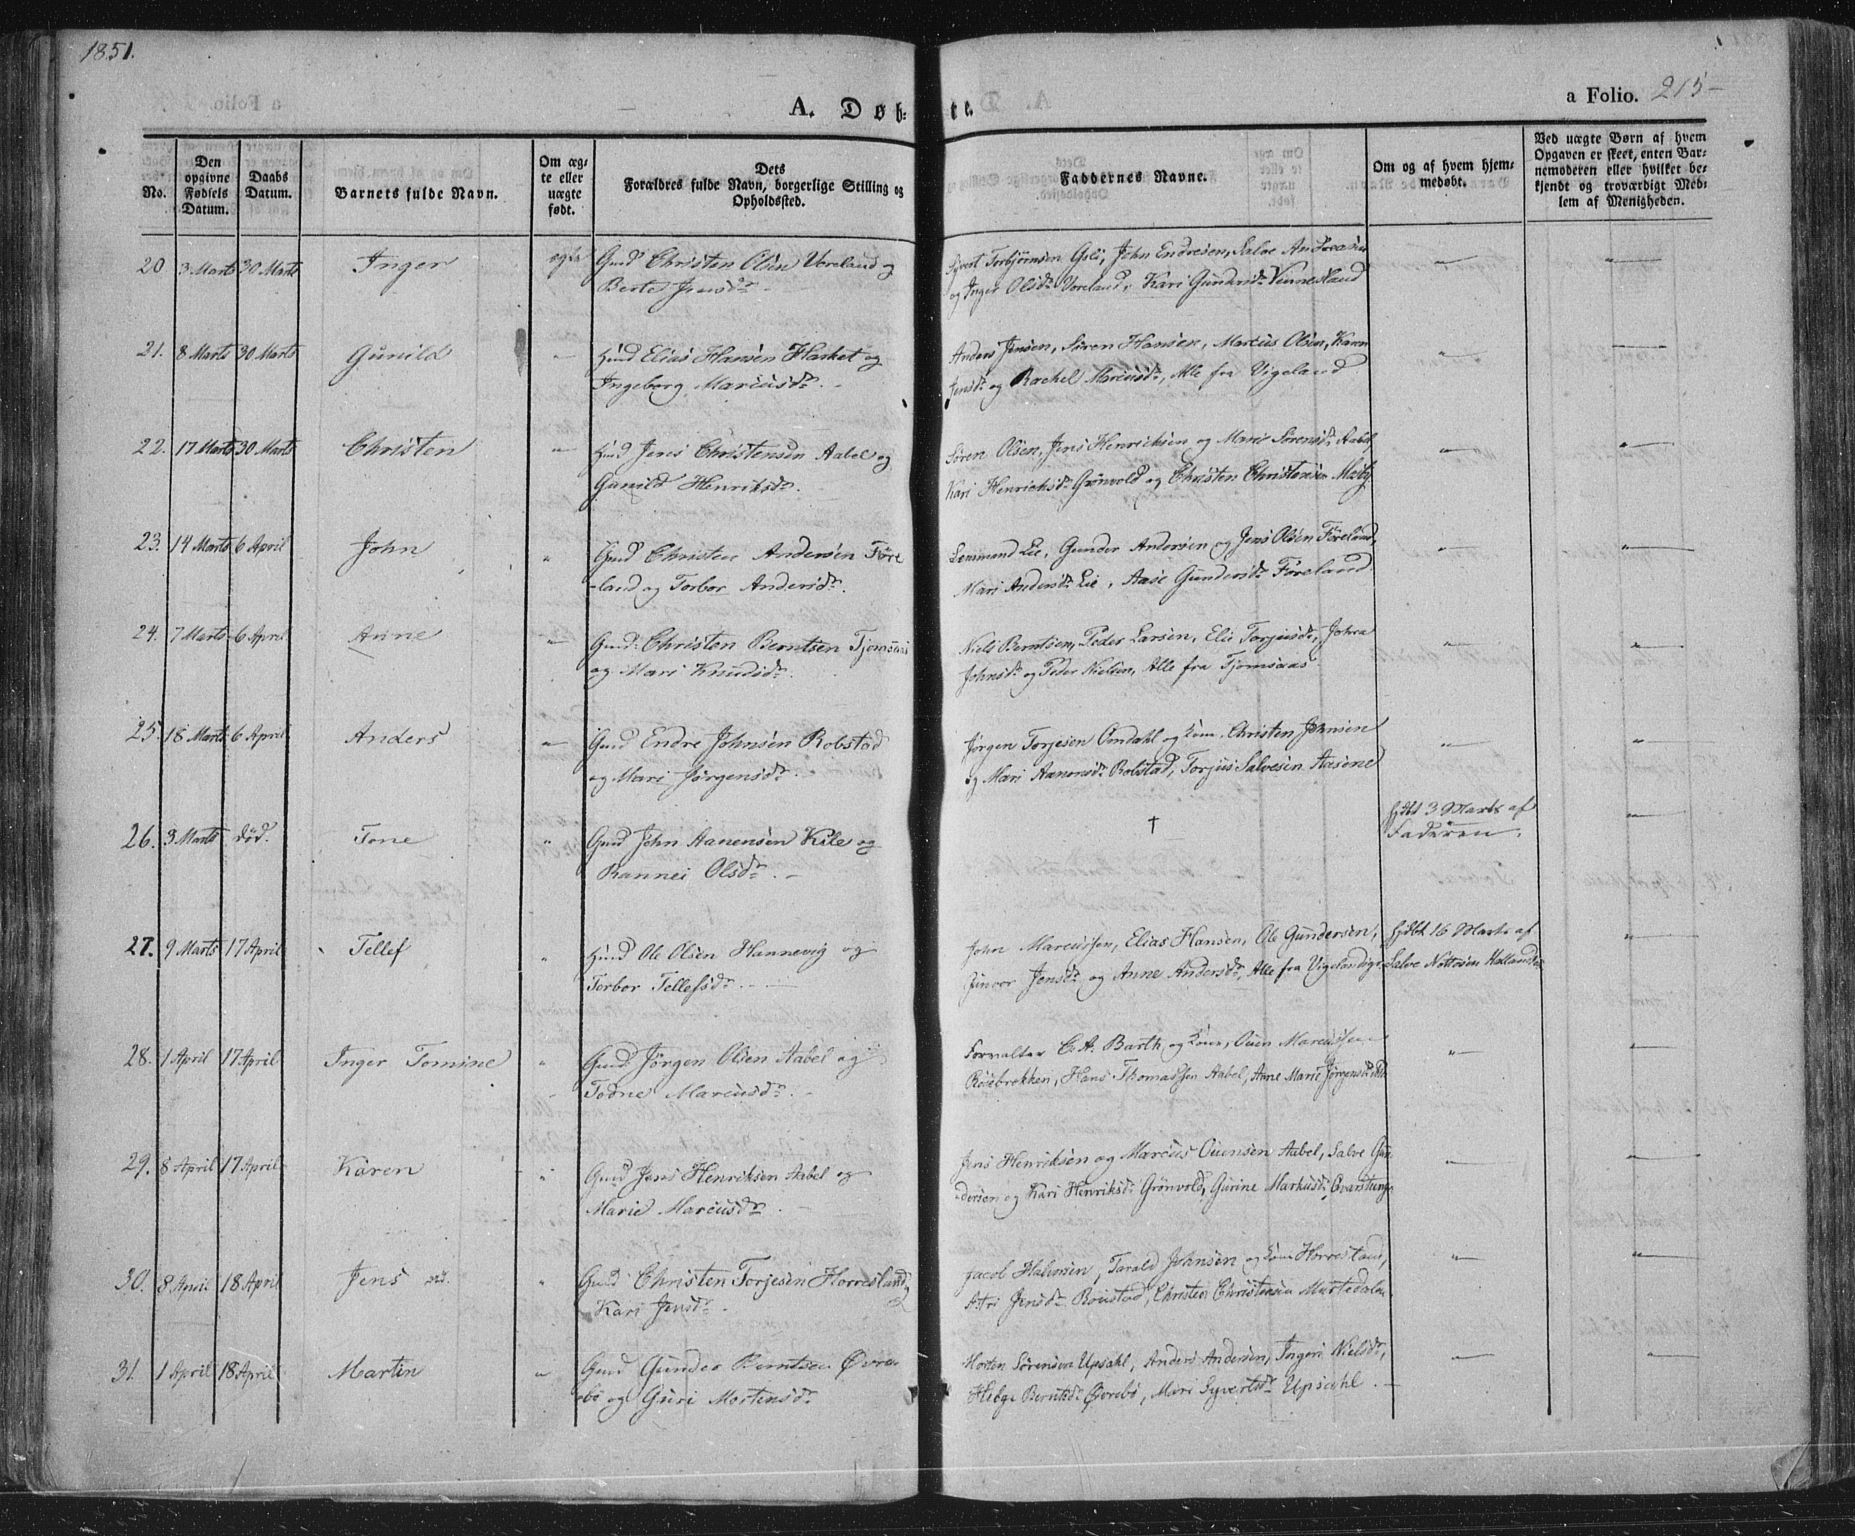 1851.
A. Døbte.
a Folio. 215
No.
Den opgivne Fødsels Datum.
Daabs Datum.
Barnets fulde Navn.
Om ægte eller uægte født.
Dets Forældres fulde Navn, borgerlige Stilling og Opholdssted.
Faddernes Navne.
Om og af hvem hjemmedøbt.
Ved uægte Børn af hvem Opgaven er skeet, enten Barnemoderen eller hvilket bekjendt og troværdigt Medlem af Menigheden.
20 3 Marts 30 Marts Inger ægte Gmd Christen Olsen Voreland og
Berte Jensdr.
Syvert Torbjørnsen Gsli, John Endresen, Salve Andreassen
og Inger Olsdr Voreland, Kari Gundersdr Vennesland
21. 8 Marts 30 Marts Gunild " Hmd Elias Hansen Harket og
Ingeborg Marcusdr.
Anders Jensen, Sören Hansen, Marcus Olsen, Karen
Jensdr og Rachel Marcusdr, Alle fra Vigeland
22. 17 Marts 30 Marts Christen " Hmd Jens Christensen Aabel og
Gunild Henriksdr.
Sören Olsen, Jens Henriksen og Maris Sörensdr Aabel
Kari Henrichsdr Grönvold og Christen Christensen Mosby
23. 14 Marts 6 April John " Gmd Christen Andersen Före
-land og Torbor Andersdr.
Lemmend Lie, Gunder Andersen og Jens Olsen Föreland,
Mari Andersdr Lie, Aase Gundersdr Föreland
24. 7 Marts 6 April Anne " Gmd Christen Berntsen Tjomsaas
og Mari Knudsdr.
Niels Berntsen, Peder Larsen, Elie Torjusdr, Johra
Johnsdr og Peder Nielsen, Alle fra Tjomsaas
25. 18 Marts 6 April Anders " Gmd Endre Johnsen Robstad
og Mari Jörgensdr.
Jörgen Torjesen Omdahl og Kone. Christen Johnsen
og Mari Aanensdr Robstad, Torjus Salvesen Aasene
26. 3 Marts död. Tone " Gmd John Aanensen Kile og
Rannei Olsdr.
†
hjdbt 3 Marts af
Faderen.
27. 9 Marts 17 April Tellef " Hmd Ole Olsen Hannevig og
Torbor Tellefsdr.
John Marcussen, Elias Hansen, Ole Gundersen,
Jinvor Jensdr og Anne Andersdr, Alle fra Vigeland
hjdbt 16 Marts af
Salve Nottosen
28. 1 April 17 April Inger Tomine " Gmd Jörgen Olsen Aabel og
Todne Marcusdr.
Forvalter C. A. Barth og Kone, Ouen Marcussen
Hans Thomassen Aabel, Anne Marie Jörgensdr
29. 8 April 17 April Karen " Gmd Jens Henriksen Aabel og
Marie Marcusdr.
Jens Henriksen og Marcus Ouensen Aabel, Salve Gun
-dersen og Kari Henriksdr Grönvold, Gurine Markusdr Qvarstung
30. 8 April 18 April Jens " Gmd Christen Torjesen Horresland og
Kari Jensdr.
Jacob Halvorsen, Tarald Johnsen og Kone Horresland,
Atri Jensdr Robstad, Christen Christensen
31. 1 April 18 April Martin " Gmd Gunder Berntsen Øvre
-bö og Guri Mortensdr
Morten Sörensen Upsahl, Anders Andersen, Ingeri Nielsdr,
Helge Berntsdr Øvrebö, Mari Syvertsdr Upsahl.